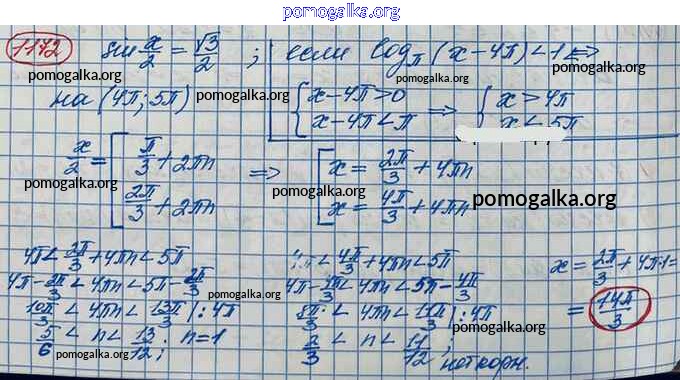 pomogalka.org
1172 sin x/2 = √3/2 ; если log_π (x−4π) < 1 ⇔
pomogalka.org pomogalka.org
на (4π; 5π) { x−4π > 0 ; x−4π < π ⇒ { x > 4π ; x < 5π
pomogalka.org
x/2 = [ π/3 + 2πn ; 2π/3 + 2πn ⇒ [ x = 2π/3 + 4πn ; x = 4π/3 + 4πn
pomogalka.org pomogalka.org pomogalka.org
4π < 2π/3 + 4πn < 5π
4π − 2π/3 < 4πn < 5π − 2π/3
10π/3 < 4πn < 13π/3 |: 4π
5/6 < n < 13/12; n = 1
pomogalka.org
< 4π/3 + 4πn < 5π
4π − 4π/3 < 4πn < 5π − 4π/3
8π/3 < 4πn < 11π/3 |: 4π
2/3 < n < 11/12 ; нет корн.
pomogalka.org
pomogalka.org
x = 2π/3 + 4π·1 =
= 14π/3